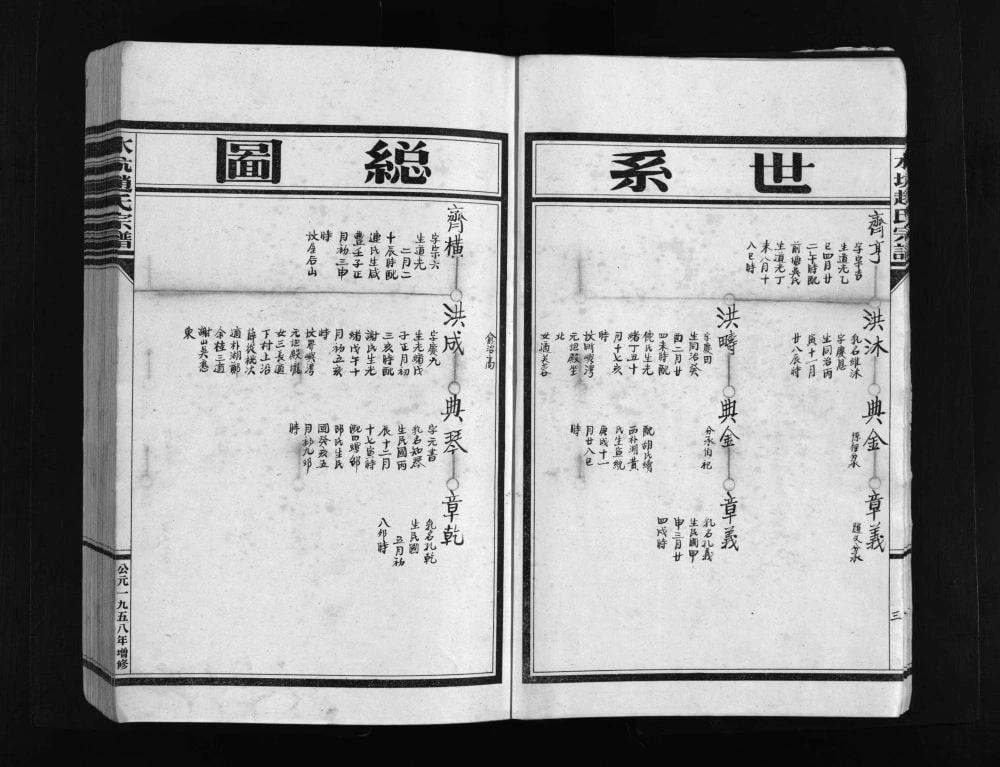 世系
齊亨
字宗吉
生道光乙
巳四月廿
二午時配
前塘吳氏
生道光丁
未八月十
八巳時
洪沐
乳名維沐
字慶恩
生同治丙
寅十一月
廿八辰時
典金
章義
洪疇
字慶田
生同治癸
酉二月廿
四未時配
倪氏生光
緒丁丑十
月十七亥
時
元坦殿坐
北
典金
分承伯祀
配胡氏續
西朴湖黃
氏生宣統
庚戌十一
月廿八巳
時
章義
乳名孔義
生民國甲
申三月廿
四戌時
三
総圖
齊橫
字宗六
生道光
二月二
十辰時配
連氏生咸
豐壬子正
月初三申
時
坟屋后山
洪成
字慶九
生光緒戊
子正月初
三亥時配
謝氏生光
緒戊午十
月初五亥
時
女三長適
下村上沿
適朴湖鄒
余桂三適
東
典琴
字元書
乳名知琴
生民國丙
辰十二月
十七寅時
邱氏生民
國癸亥五
月初九卯
時
章乾
乳名孔乾
生民國
五月初
八卯時
水坑趙氏宗譜
公元一九五八年增修